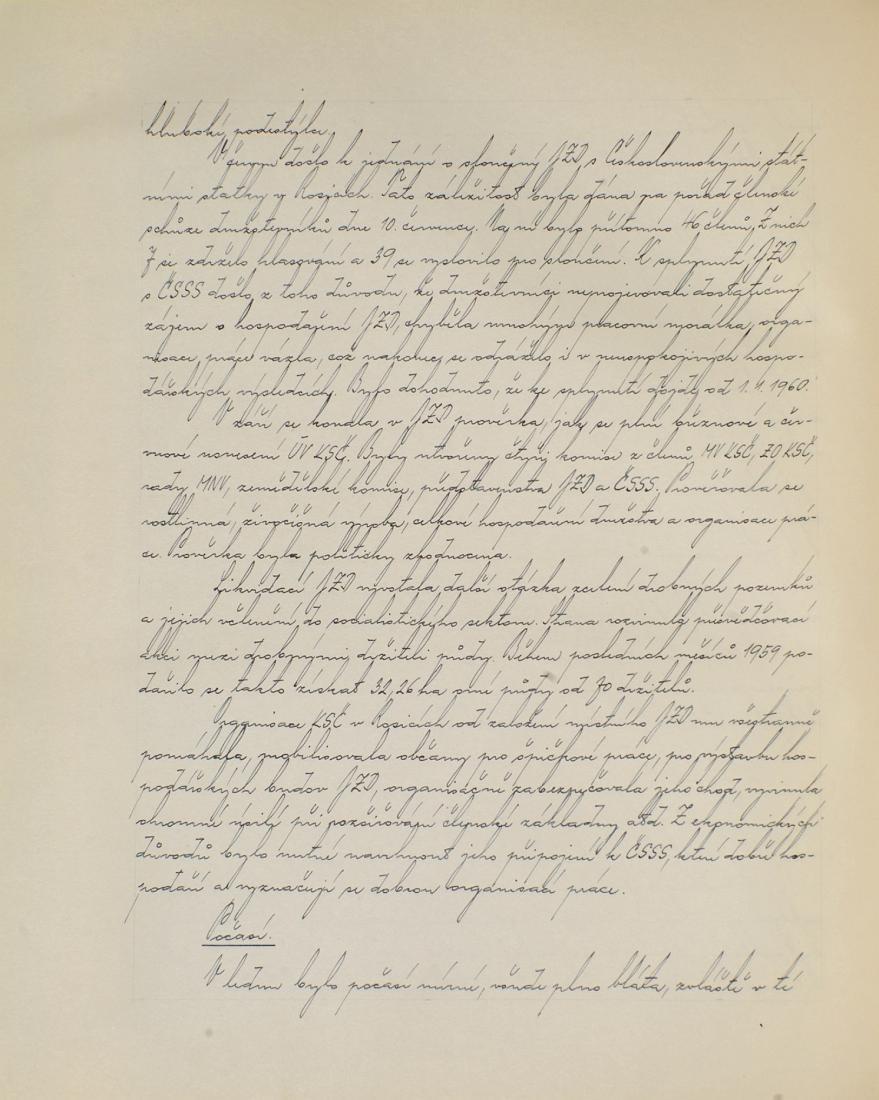 hluboké podestýlce.
V červnu došlo k jednání o sloučení JZD s Československými stát-
ními statky v Rosicích. Tato záležitost byla dána na pořad členské
schůze družstevníků dne 10. července. Na ni bylo přítomno 46 členů, z nich
7 se zdrželo hlasování a 39 se vyslovilo pro sloučení. K splynutí JZD
s ČSSS došlo z toho důvodu, že družstevníci neprojevovali dostatečný
zájem o hospodaření JZD, chyběla mnohým pracovní morálka, orga-
nisace práce vázla, což nakonec se odráželo i v neuspokojivých hospo-
dářských výsledcích. Bylo dohodnuto, že ke splynutí dojde od 1. 1. 1960.
V září se konala v JZD prověrka, jak se plní březnové a čer-
vnové usnesení ÚV KSČ. Byly utvořeny čtyři komise z členů MV KSČ, ZO KSČ,
rady MNV, zemědělské komise, představenstva JZD a ČSSS. Prověřovala se
rostlinná, živočišná výroba, celkové hospodaření družstva a organisace prá-
ce. Prověrka byla politicky zhodnocena.
Likvidací JZD vyvstala další otázka scelení drobných pozemků
a jejich včlenění do socialistického sektoru. Strana rozvinula přesvědčovací
akci mezi drobnými držiteli půdy. Během posledních měsíců 1959 po-
dařilo se takto získat 32,26 ha orné půdy od 70 držitelů.
Organisace KSČ v Rosicích od založení místního JZD mu všestranně
pomáhala, mobilisovala občany pro špičkové práce, pro výstavbu hos-
podářských budov JZD, organisačně zabezpečovala jeho chod, vyvinula
ohromné úsilí při rozšiřování členské základny atd. Z ekonomických
důvodů bylo nutné navrhnout jeho připojení k ČSSS, které dobře hos-
podaří a vyznačují se dobrou organisací práce.
Počasí.
V lednu bylo počasí mírné, všude plno bláta, zvláště v té